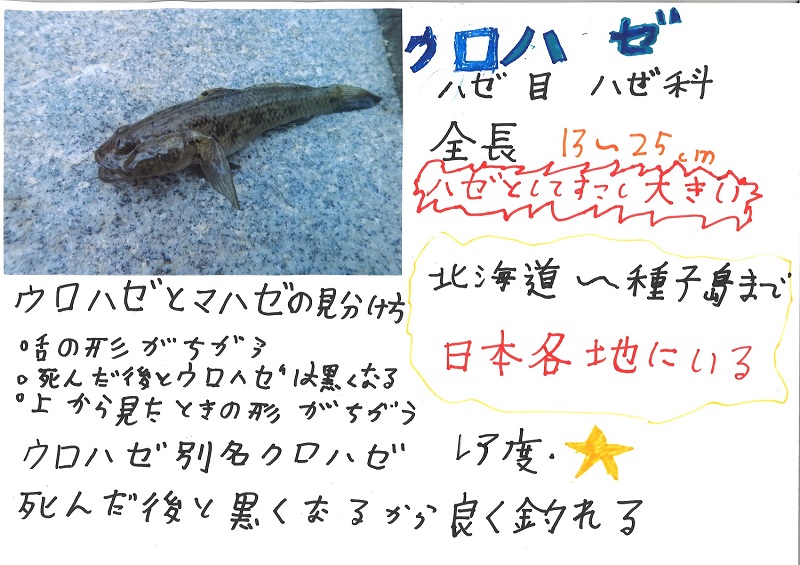 ウロハゼ
ハゼ目 ハゼ科
全長 13〜25cm
ハゼとしてすこし大きい
北海道〜種子島まで
日本各地にいる
ウロハゼとマハゼの見分け方
○舌の形がちがう
○死んだ後とウロハゼは黒くなる
○上から見たときの形がちがう
ウロハゼ別名クロハゼ
レア度・
死んだ後と黒くなるから良く釣れる